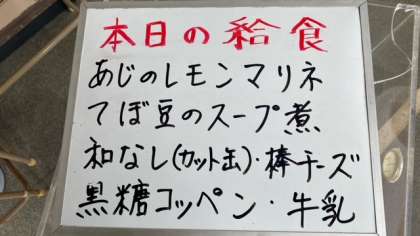 本日の給食
あじのレモンマリネ
てぼ豆のスープ煮
和なし(カット缶)・棒チーズ
黒糖コッペン・牛乳